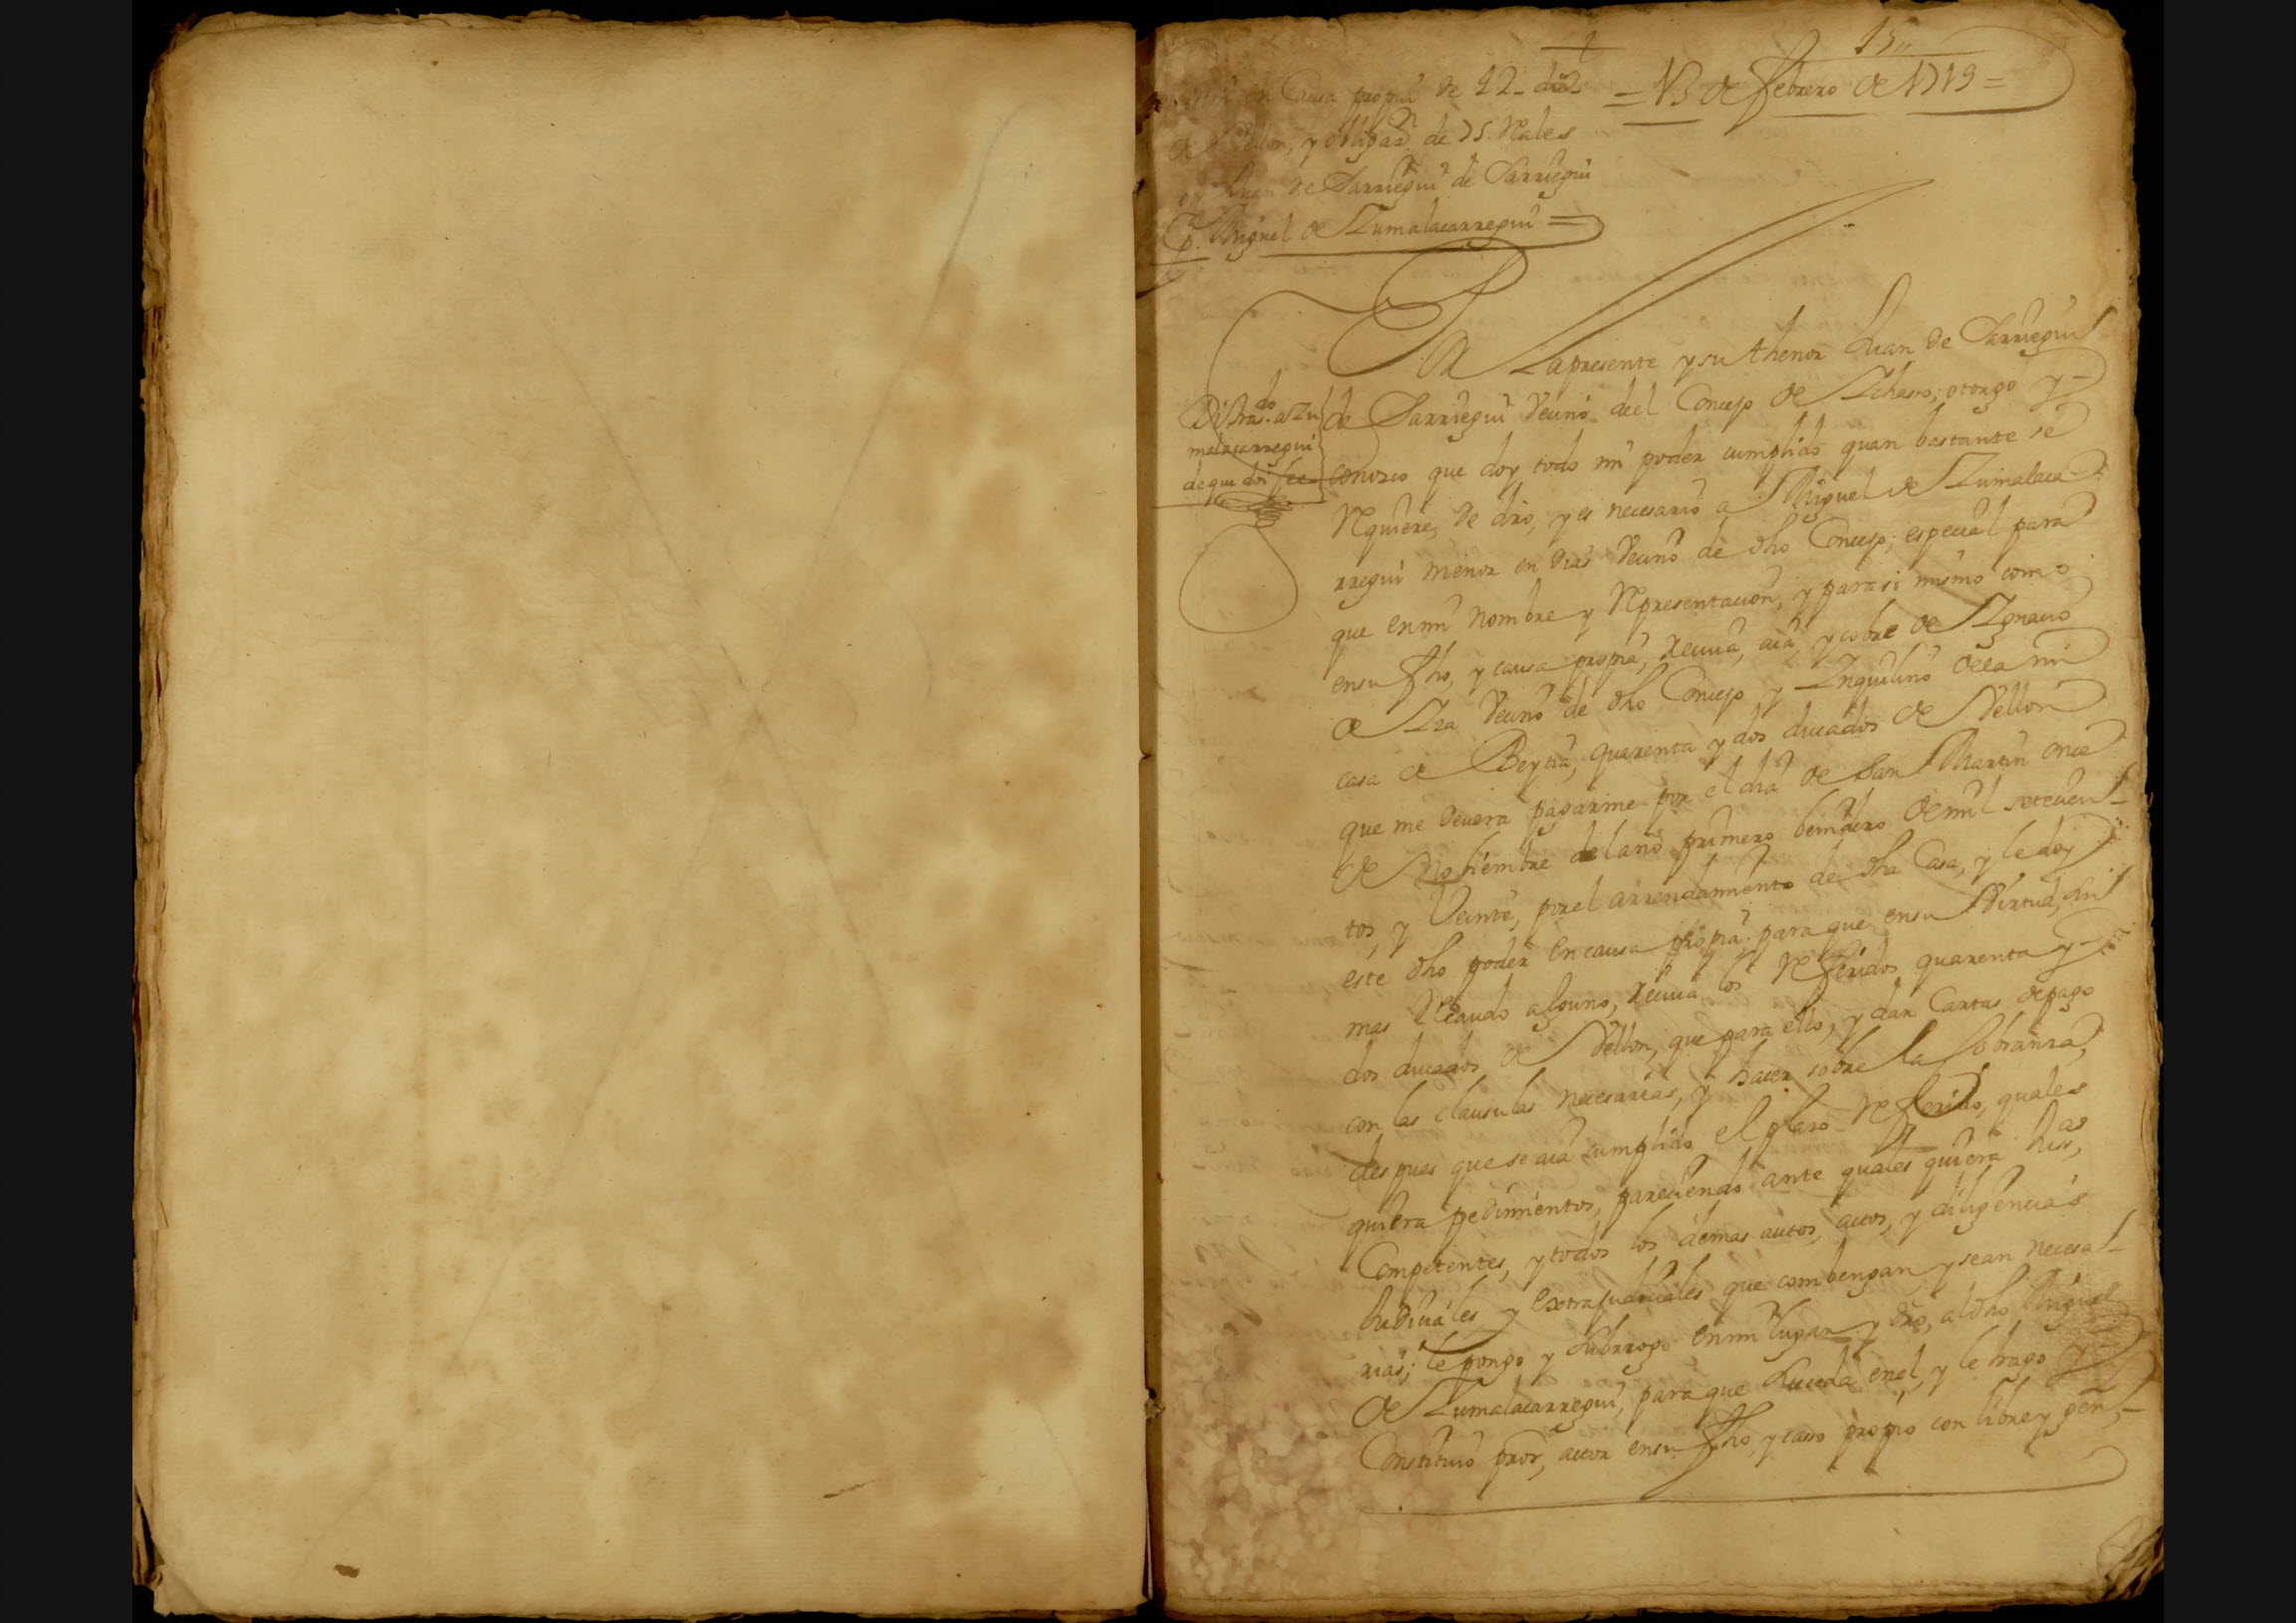 15
en Causa propia de 42 - d.s
de Vellon, y obligaz.n de 75 Reales
Juan de Sarriegui de Sarriegui
p. Miguel de Zumalacarregui =
= 13 de febrero de 1719 =
Por la presente y su thenor Juan de Sarriegui
de Sarriegui Vecino del Concejo de Ichaso; otorgo y -
conozco que doy todo mi poder cumplido quan bastante se
Requiere, de dro, y es necesario a Miguel de Zumalaca
rregui menor en dias Vecino de dho Concejo; especial para
que en mi nombre y Representacion, y para si mismo como
en su fho, y causa propia, reciua, aia, y cobre de Ygnacio
de Vecino de dho Concejo y Ynquilino de la mi
casa de Beytia, quarenta y dos ducados de Vellon
que me deuera pagarme por el dia de San Martin once
de Nobiembre del año primero benidero de mil setecien -
tos, y Veinte, por el arrendamiento de dha Casa, y le doy
este dho poder en causa propia; para que en su Virtud, sin
mas Recaudo alguno, reciua los Referidos quarenta y -
dos ducados de Vellon, que para ello, y dar Cartas de pago
con las clausulas necesarias, y hacer sobre la Cobranza,
despues que se aia cumplido el plazo Referido, quales
quiera pedimientos, pareciendo ante quales quiera Juss.as
Competentes, y todos los demas autos, actos, y diligencias
Judiciales y Extrajudiciales que combengan y sean necesa -
rias; le pongo y Subrrogo en mi lugar y dro, al dho Miguel
de Zumalacarregui, para que Suceda en el, y le hago y
Constituio pror, actor en su fho, y caso propio con libre y gen,
Di tras.do a Zu
malacarregui
de que doi fee